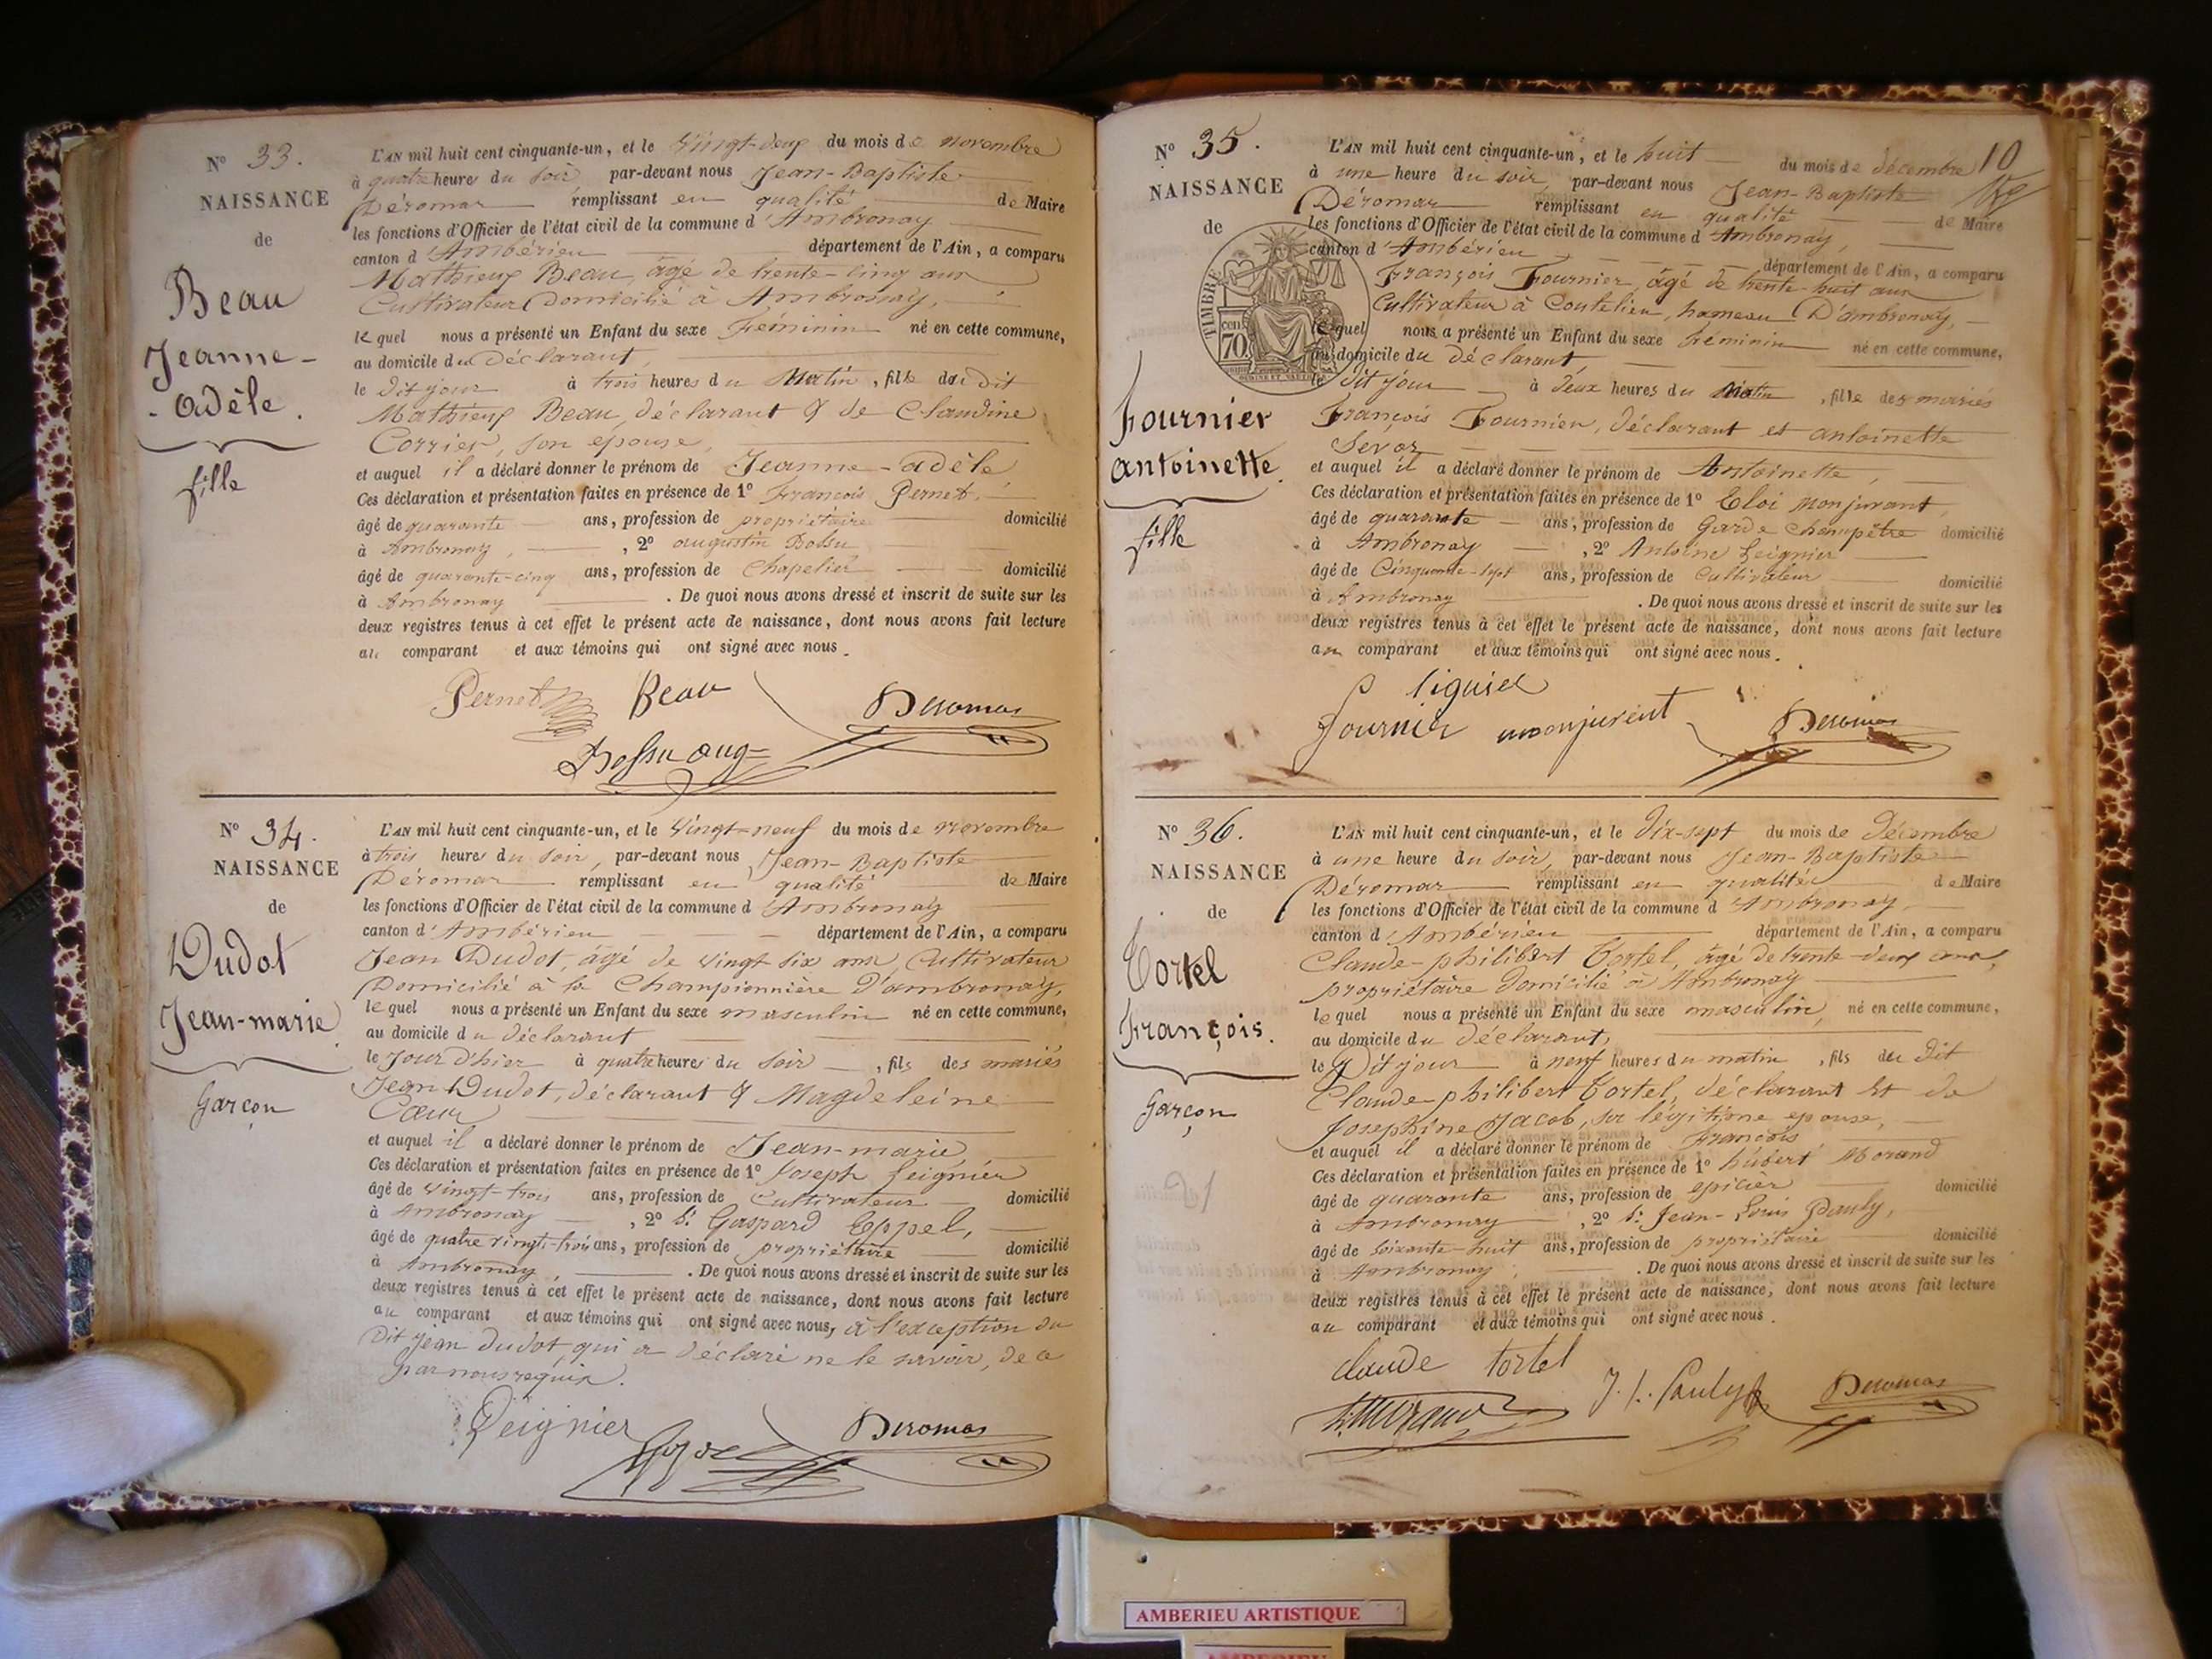 N° 33.
NAISSANCE
de
Beau
Jeanne-
-adèle.
fille
L'AN mil huit cent cinquante-un, et le vingt-deux du mois de novembre
à quatre heures du soir par-devant nous Jean-Baptiste
Déromas remplissant en qualité de Maire
les fonctions d'Officier de l'état civil de la commune d'Ambronay
canton d'Ambérieu département de l'Ain, a comparu
Mathieux Beau, âgé de trente-cinq ans
Cultivateur Domicilié à Ambronay,
lequel nous a présenté un Enfant du sexe Féminin né en cette commune,
au domicile du déclarant,
le dit jour à trois heures du Matin, fille du dit
Mathieux Beau, déclarant & de Claudine
Corrier, son épouse,
et auquel il a déclaré donner le prénom de Jeanne-adèle
Ces déclaration et présentation faites en présence de 1° François Pernet,
âgé de quarante ans, profession de propriétaire domicilié
à Ambronay, , 2° augustin Bossu
âgé de quarante-cinq ans, profession de Chapelier domicilié
à Ambronay . De quoi nous avons dressé et inscrit de suite sur les
deux registres tenus à cet effet le présent acte de naissance, dont nous avons fait lecture
au comparant et aux témoins qui ont signé avec nous.
Pernet Beau Deromas
Bossu aug=
N° 34.
NAISSANCE
de
Dudot
Jean-marie
Garçon
L'AN mil huit cent cinquante-un, et le vingt-neuf du mois de novembre
à trois heures du soir, par-devant nous Jean-Baptiste
Déromas remplissant en qualité de Maire
les fonctions d'Officier de l'état civil de la commune d'Ambronay
canton d'Ambérieu département de l'Ain, a comparu
Jean Dudot, âgé de vingt six ans, Cultivateur
Domicilié à la Championnière d'ambronay,
lequel nous a présenté un Enfant du sexe masculin né en cette commune,
au domicile du déclarant
le Jour d'hier à quatre heures du soir, fils des mariés
Jean Dudot, déclarant & Magdeleine
Cœur
et auquel il a déclaré donner le prénom de Jean-marie,
Ces déclaration et présentation faites en présence de 1° Joseph Leignier
âgé de vingt-trois ans, profession de Cultivateur domicilié
à Ambronay , 2° Sr Gaspard Eppel,
âgé de quatre vingt-trois ans, profession de propriétaire domicilié
à Ambronay . De quoi nous avons dressé et inscrit de suite sur les
deux registres tenus à cet effet le présent acte de naissance, dont nous avons fait lecture
au comparant et aux témoins qui ont signé avec nous, à l'exception du
Dit Jean Dudot, qui a déclaré ne le savoir, de ce
par nous requis.
Leignier Deromas
10
N° 35.
NAISSANCE
de
TIMBRE
70
cent
Fournier
antoinette.
fille
L'AN mil huit cent cinquante-un, et le huit du mois de décembre
à une heure du soir, par-devant nous Jean-Baptiste
Déromas remplissant en qualité de Maire
les fonctions d'Officier de l'état civil de la commune d'Ambronay,
canton d'Ambérieu département de l'Ain, a comparu
François Fournier, âgé de trente-huit ans
Cultivateur à Coutelieu, hameau D'ambronay,
lequel nous a présenté un Enfant du sexe Féminin né en cette commune,
au domicile du déclarant,
le dit jour à deux heures du Matin, fille des mariés
François Fournier, déclarant et antoinette
Sevoz
et auquel il a déclaré donner le prénom de Antoinette,
Ces déclaration et présentation faites en présence de 1° Eloi monjurant,
âgé de quarante ans, profession de Garde Champêtre domicilié
à Ambronay , 2° Antoine Leignier
âgé de Cinquante-sept ans, profession de Cultivateur domicilié
à Ambronay . De quoi nous avons dressé et inscrit de suite sur les
deux registres tenus à cet effet le présent acte de naissance, dont nous avons fait lecture
au comparant et aux témoins qui ont signé avec nous.
liguier
fournier monjurent Deromas
N° 36.
NAISSANCE
de
Tortel
François.
Garçon
L'AN mil huit cent cinquante-un, et le dix-sept du mois de Décembre
à une heure du soir, par-devant nous Jean-Baptiste
Déromas remplissant en qualité de Maire
les fonctions d'Officier de l'état civil de la commune d'Ambronay
canton d'Ambérieu département de l'Ain, a comparu
Claude-philibert Tortel, âgé de trente-deux ans,
propriétaire domicilié à Ambronay
lequel nous a présenté un Enfant du sexe masculin, né en cette commune,
au domicile du déclarant,
le Dit jour à neuf heures du matin, fils du Dit
Claude-philibert Tortel, déclarant et de
Josephine Jacob, sa légitime epouse,
et auquel il a déclaré donner le prénom de François,
Ces déclaration et présentation faites en présence de 1° hubert Morand
âgé de quarante ans, profession de epicier domicilié
à Ambronay , 2° Sr Jean-Louis Pauly,
âgé de soixante-huit ans, profession de propriétaire domicilié
à Ambronay, . De quoi nous avons dressé et inscrit de suite sur les
deux registres tenus à cet effet le présent acte de naissance, dont nous avons fait lecture
au comparant et aux témoins qui ont signé avec nous.
claude tortel
h. Morand J. L. Pauly Deromas
AMBERIEU ARTISTIQUE
AMBERIEU